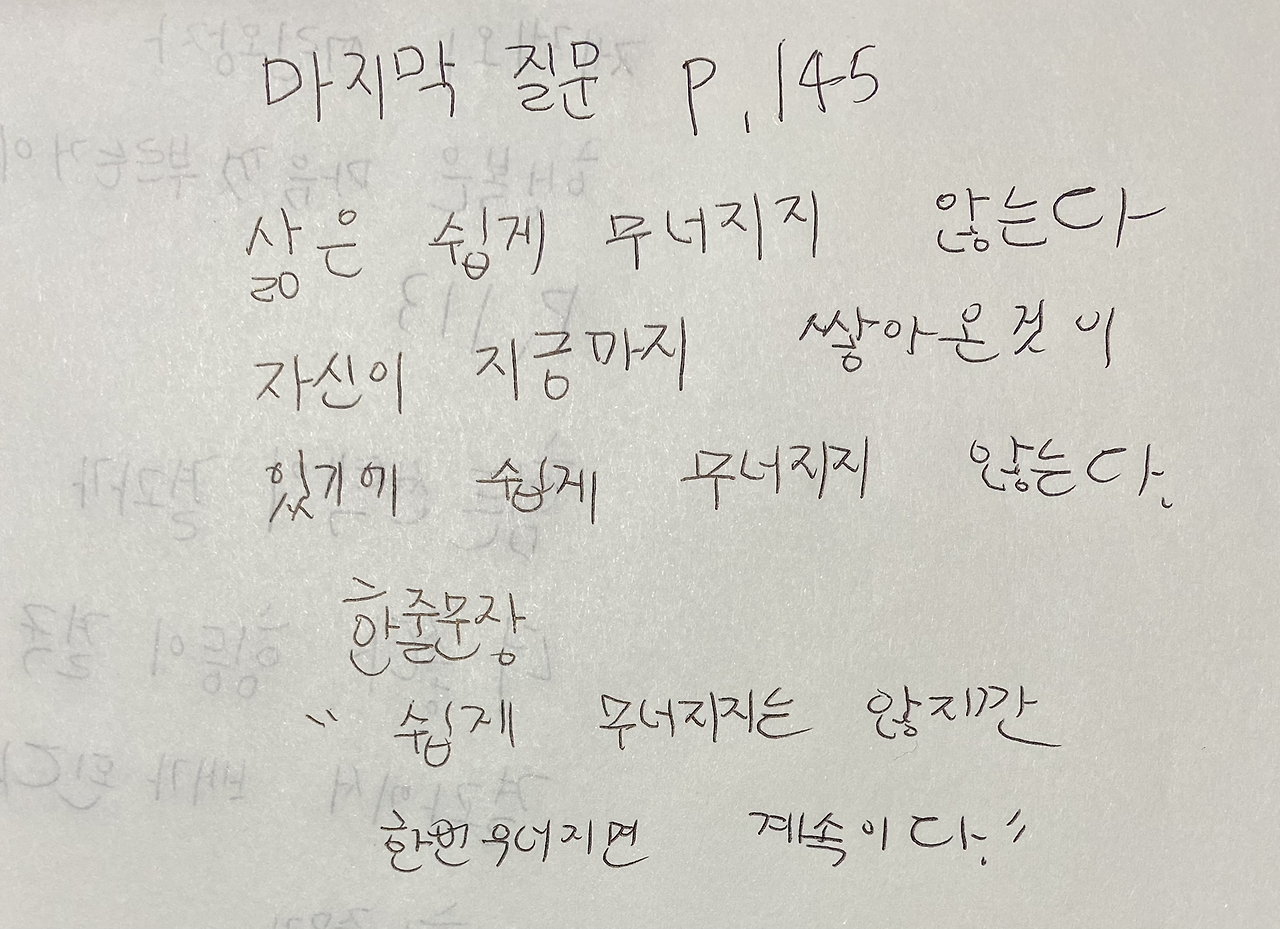 마지막 질문 p.145
삶은 쉽게 무너지지 않는다
자신이 지금까지 쌓아온것이
있기에 쉽게 무너지지 않는다.
한줄문장
"쉽게 무너지지는 않지만
한번무너지면 계속이다."